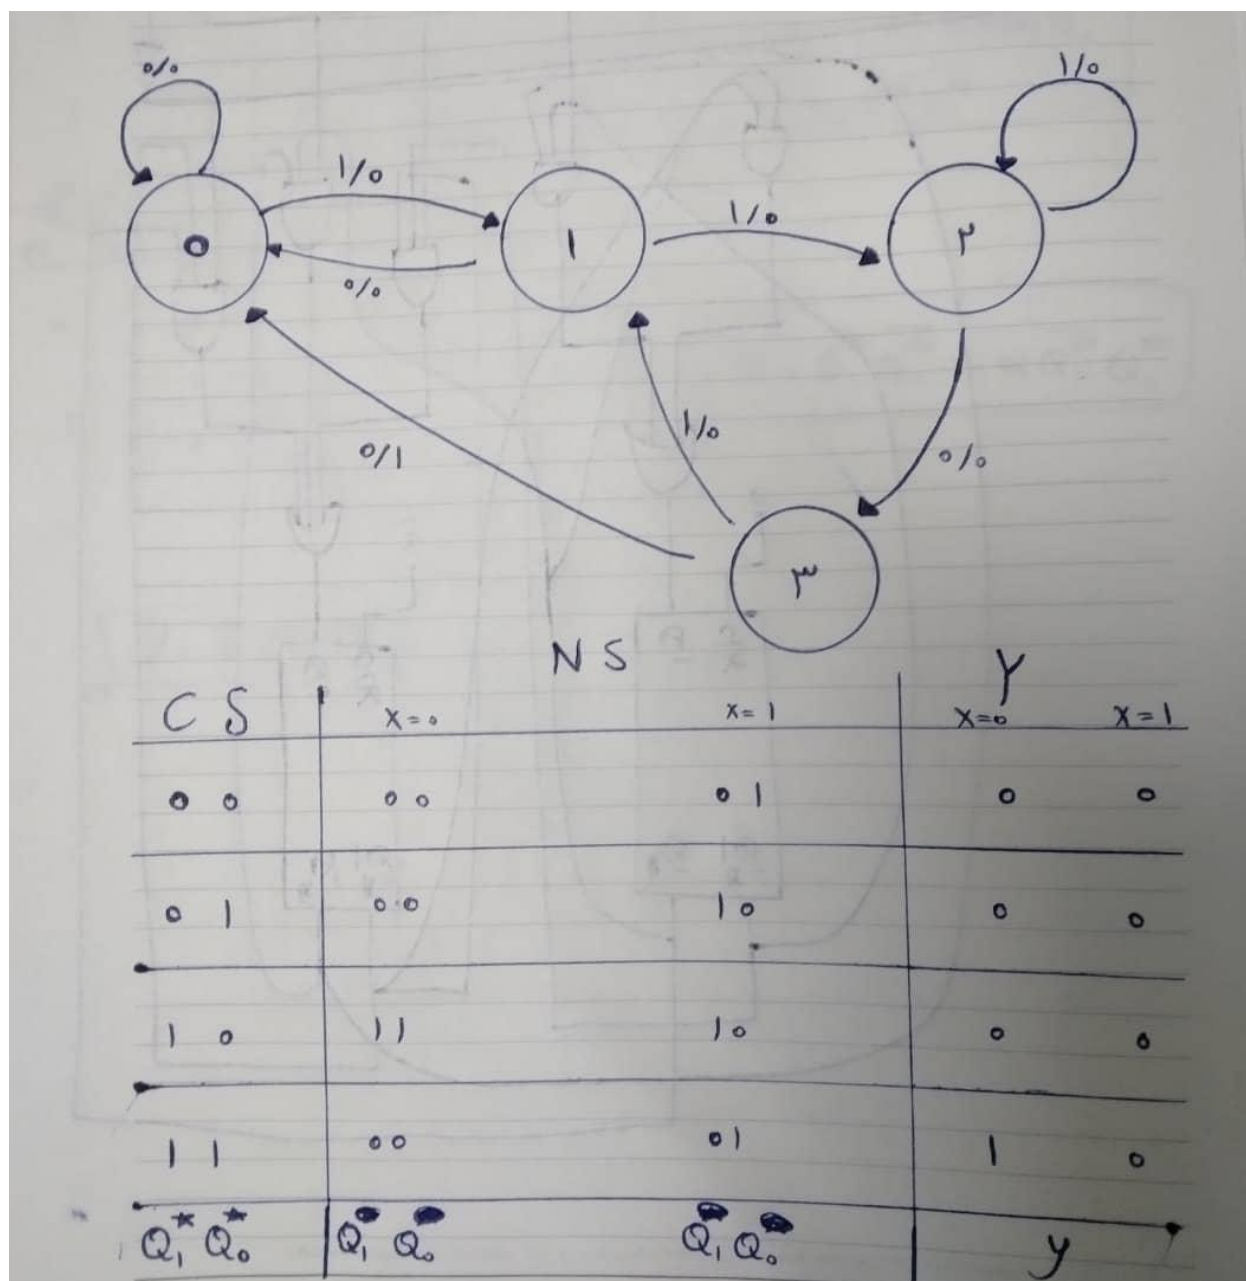 0/0
1/0
1/0
1/0
0
1
۲
0/0
1/0
0/0
0/1
۳
N S
Y
C S X=0 X=1 X=0 X=1
0 0 0 0 0 1 0 0
0 1 0 0 1 0 0 0
1 0 1 1 1 0 0 0
1 1 0 0 0 1 1 0
Q₁* Q₀* Q₁ Q₀ Q₁ Q₀ y